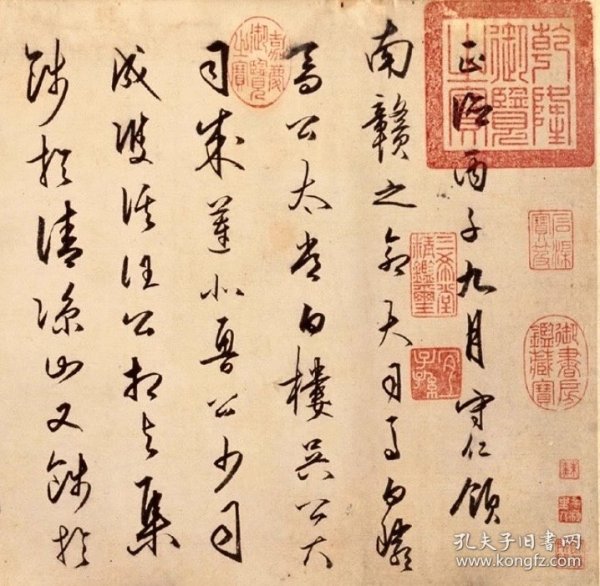 正德丙子九月守仁領
南贛之命大司馬白巖
喬公太常白樓吳公大
司成蓮北魯公少司
成雙溪汪公相與集
餞於清涼山又餞於
乾隆御覽之寶
嘉慶御覽之寶
石渠寶笈
三希堂精鑑璽
宜子孫
御書房鑑藏寶
孔夫子旧书网
www.kongfz.com